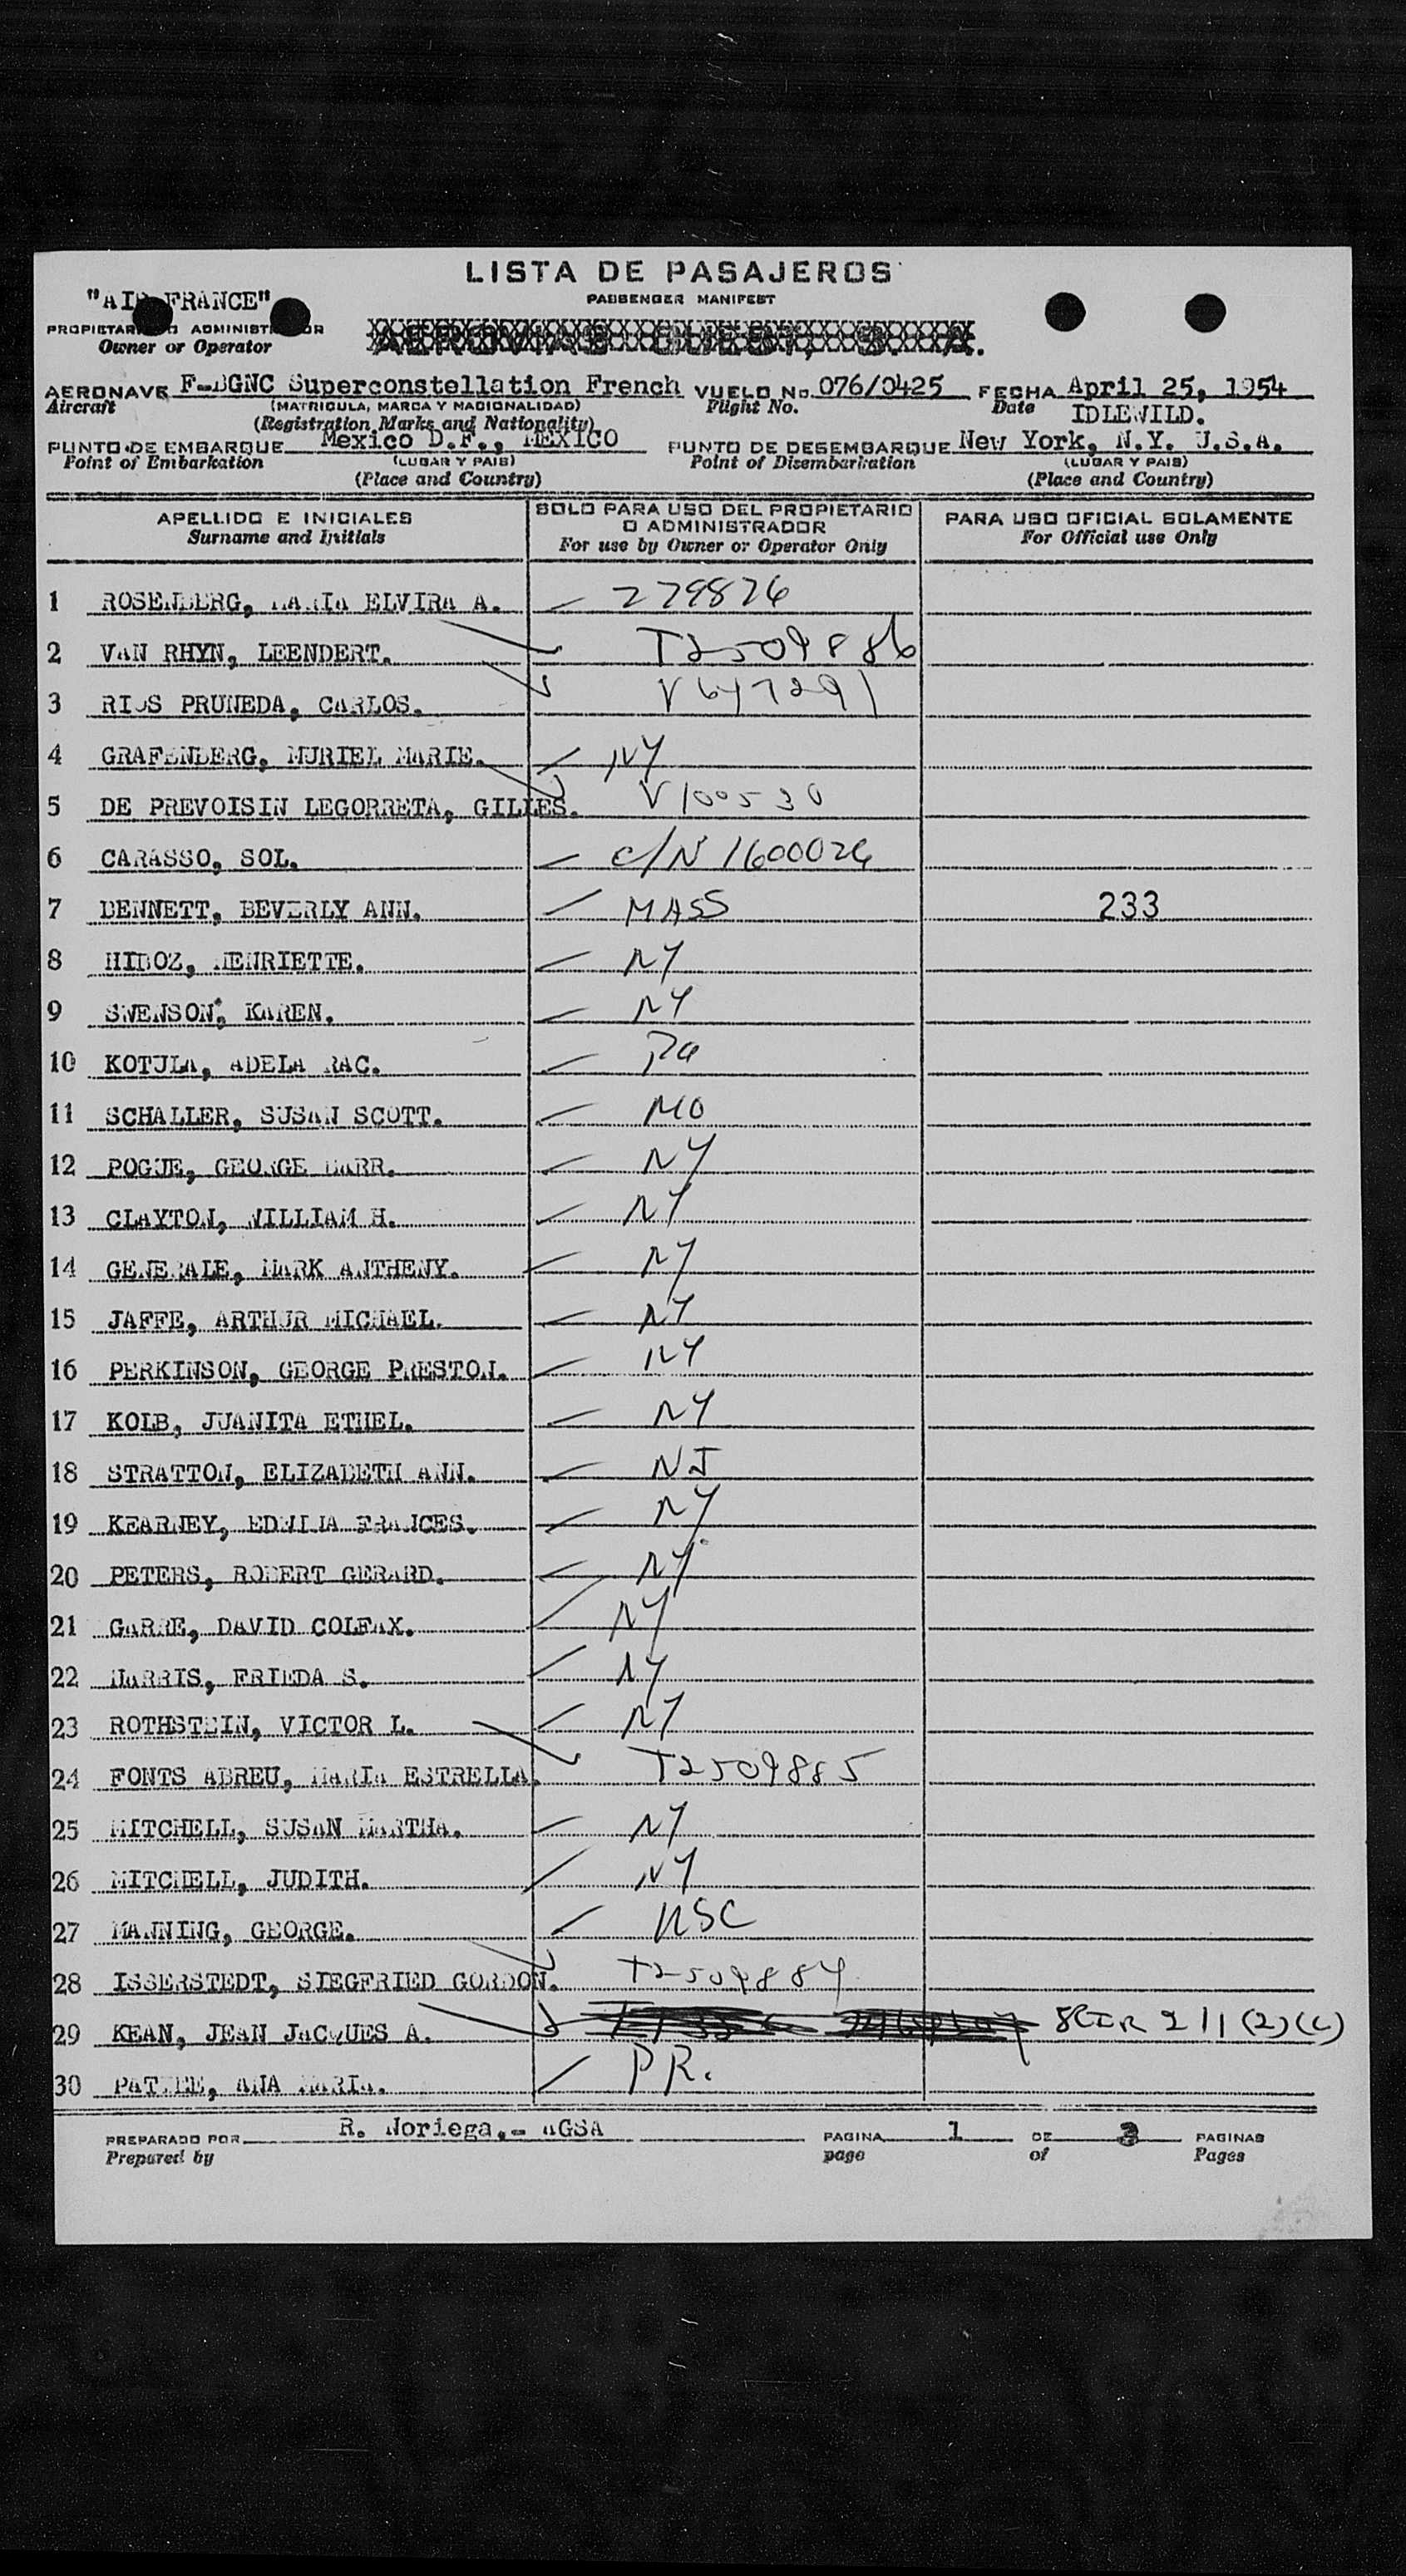 LISTA DE PASAJEROS
PASSENGER MANIFEST
"AIR FRANCE"
PROPIETARIO O ADMINISTRADOR
Owner or Operator
AEROVIAS GUEST, S. A.
AERONAVE F-BGNC Superconstellation French VUELO No. 076/0425 FECHA April 25, 1954
Aircraft (MATRICULA, MARCA Y NACIONALIDAD) Flight No. Date IDLEWILD.
(Registration Marks and Nationality)
PUNTO DE EMBARQUE Mexico D.F., MEXICO PUNTO DE DESEMBARQUE New York, N.Y. U.S.A.
Point of Embarkation (LUGAR Y PAIS) Point of Disembarkation (LUGAR Y PAIS)
(Place and Country) (Place and Country)
APELLIDO E INICIALES SOLO PARA USO DEL PROPIETARIO O ADMINISTRADOR PARA USO OFICIAL SOLAMENTE
Surname and Initials For use by Owner or Operator Only For Official use Only
1 ROSENBERG, MARIA ELVIRA A. 279826
2 VAN RHYN, LEENDERT. T2509886
3 RIOS PRUNEDA, CARLOS. V647291
4 GRAFENBERG, MURIEL MARIE. NY
5 DE PREVOISIN LEGORRETA, GILLES. V100530
6 CARASSO, SOL. C/N 1600026
7 BENNETT, BEVERLY ANN. MASS 233
8 HIBOZ, HENRIETTE. NY
9 SWENSON, KAREN. NY
10 KOTULA, ADELA RAC. Pa
11 SCHALLER, SUSAN SCOTT. MO
12 POGUE, GEORGE BARR. NY
13 CLAYTON, WILLIAM H. NY
14 GENERALE, MARK ANTHENY. NY
15 JAFFE, ARTHUR MICHAEL. NY
16 PERKINSON, GEORGE PRESTON. NY
17 KOLB, JUANITA ETHEL. NY
18 STRATTON, ELIZABETH ANN. NJ
19 KEARNEY, EDWINA FRANCES. NY
20 PETERS, ROBERT GERARD. NY
21 GARRE, DAVID COLFAX. NY
22 HARRIS, FRIEDA S. NY
23 ROTHSTEIN, VICTOR L. NY
24 FONTS ABREU, MARIA ESTRELLA. T2509885
25 MITCHELL, SUSAN MARTHA. NY
26 MITCHELL, JUDITH. NY
27 MANNING, GEORGE. USC
28 ISSERSTEDT, SIEGFRIED GORDON. T2509884
29 KEAN, JEAN JACQUES A. 8CFR 211(2)(c)
30 PATTEE, ANA MARIA. PR.
PREPARADO POR R. Noriega.- AGSA PAGINA 1 DE 3 PAGINAS
Prepared by page of Pages